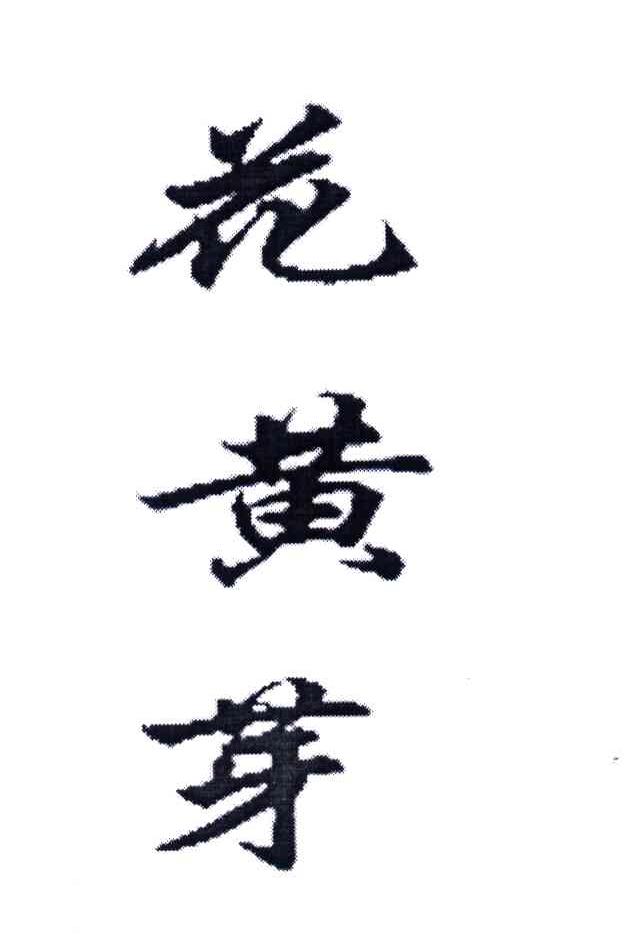 花黄芽